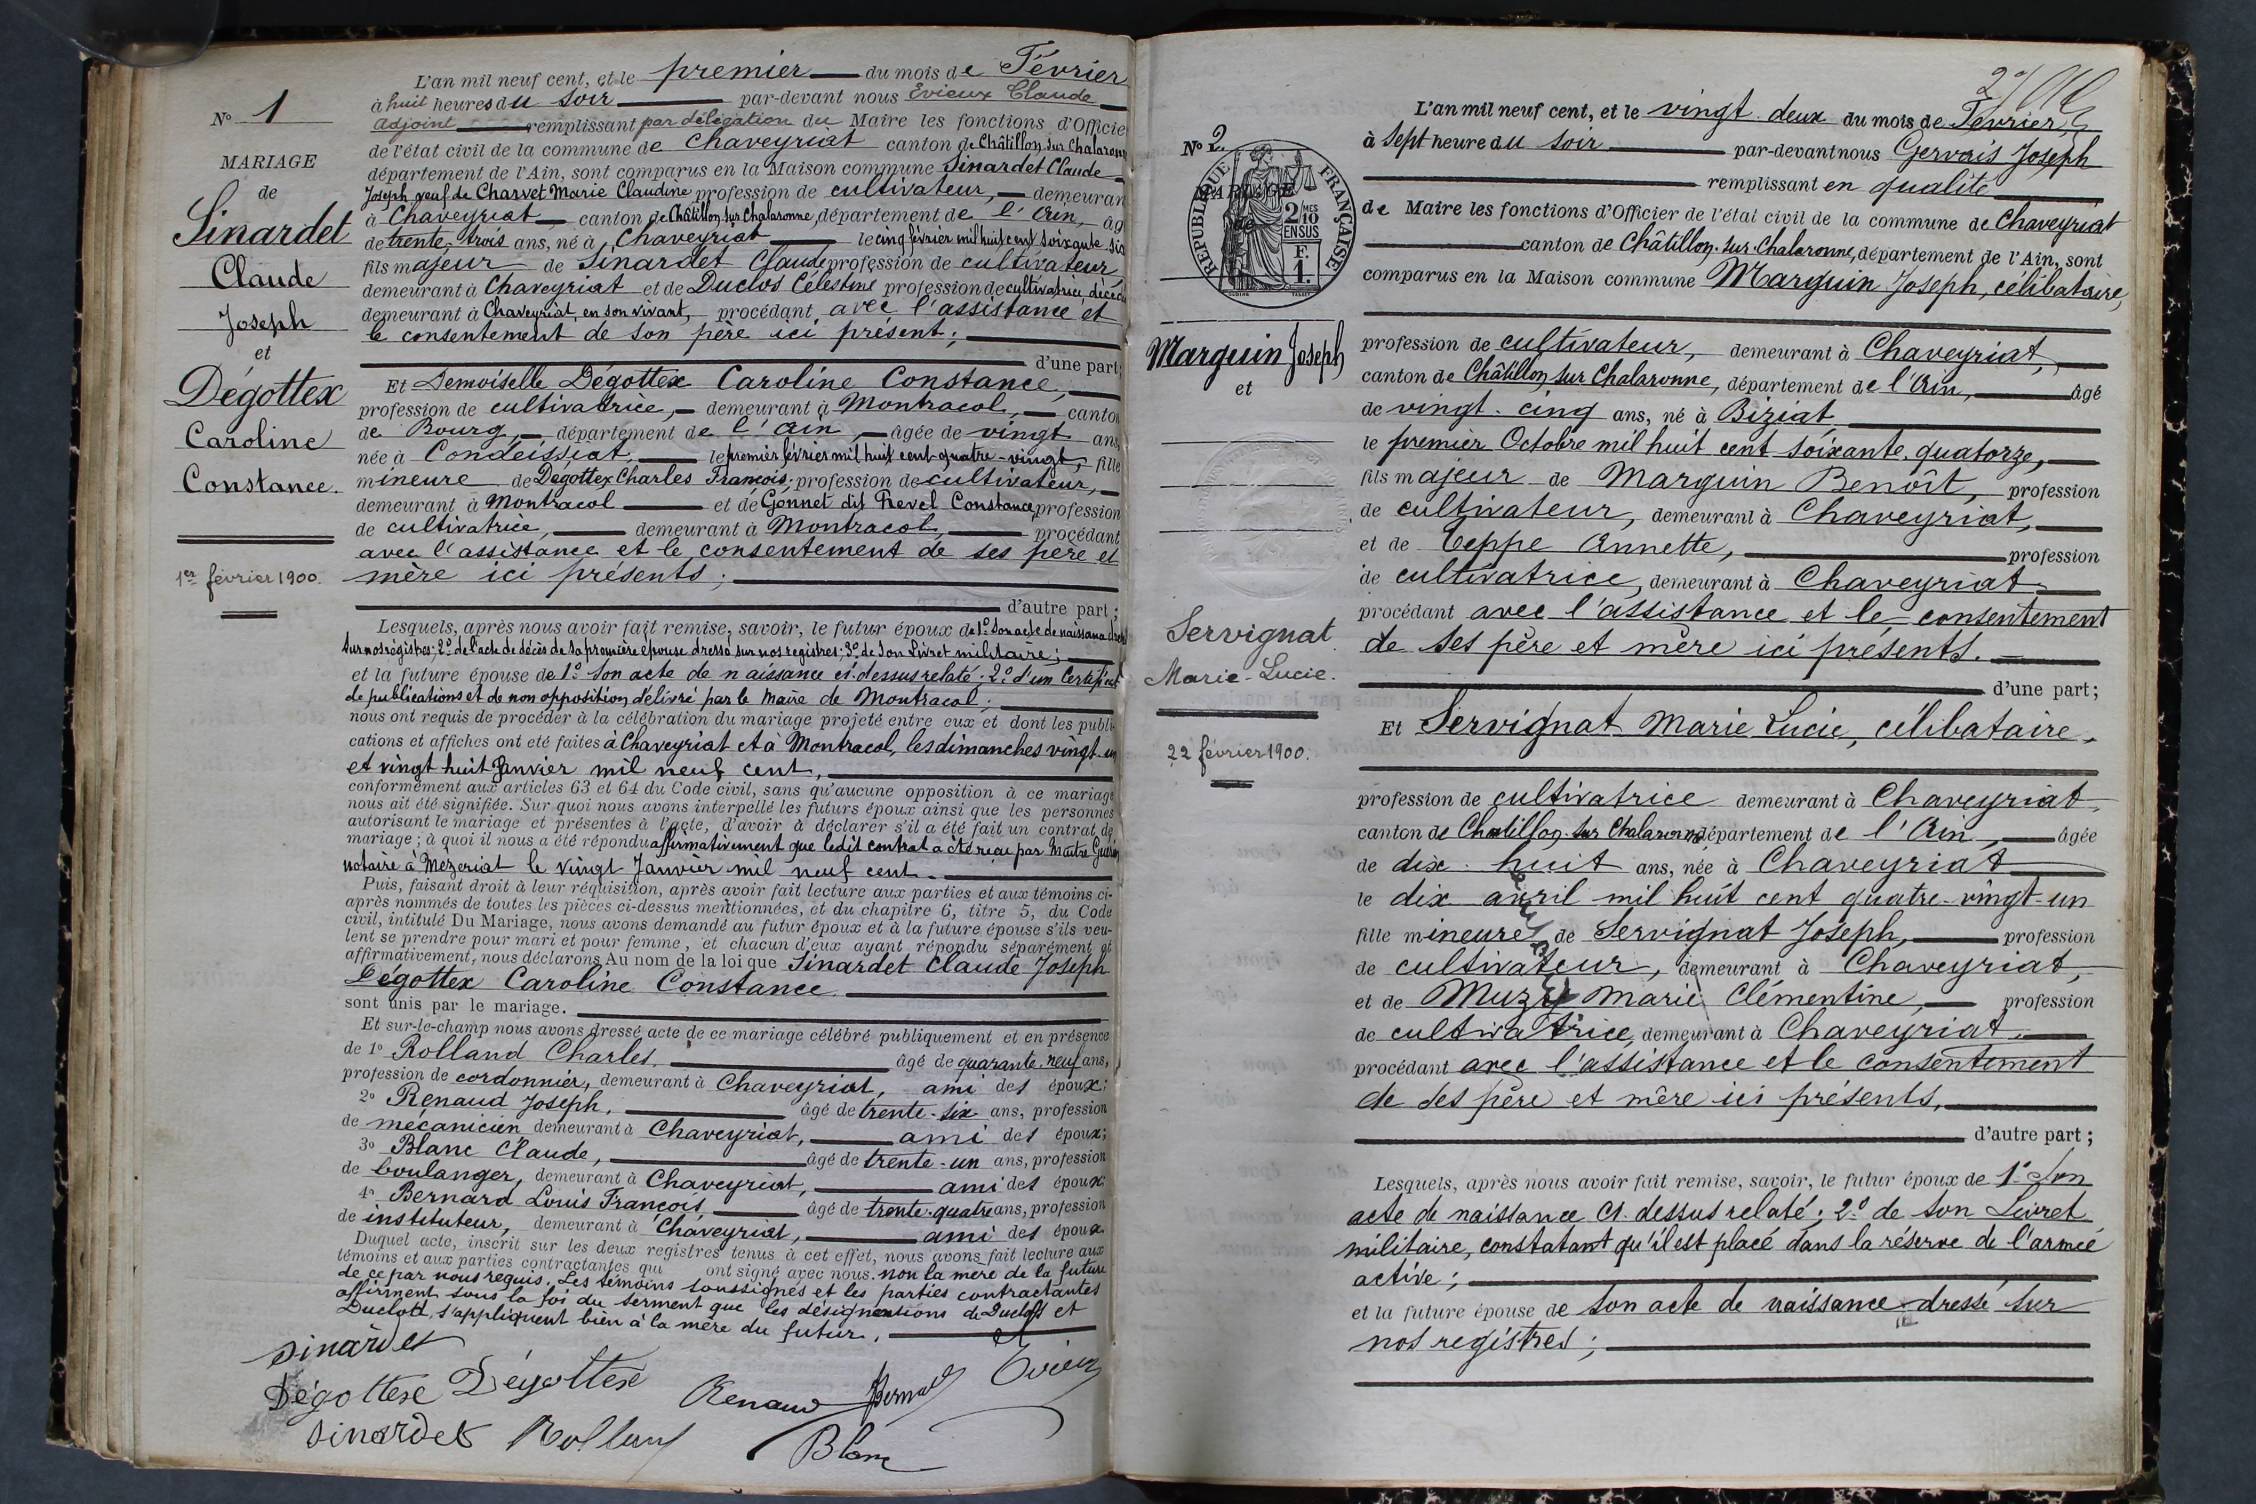 L'an mil neuf cent, et le premier du mois de Février
à huit heures du soir par-devant nous Evieux Claude
adjoint remplissant par délégation du Maire les fonctions d'Officier
de l'état civil de la commune de Chaveyriat canton de Châtillon sur Chalaronne
département de l'Ain, sont comparus en la Maison commune Sinardet Claude
Joseph veuf de Charvet Marie Claudine profession de cultivateur, demeurant
à Chaveyriat canton de Châtillon sur Chalaronne, département de l'Ain, âgé
de trente-trois ans, né à Chaveyriat le cinq février mil huit cent soixante six
fils majeur de Sinardet Claude profession de cultivateur
demeurant à Chaveyriat et de Duclos Célestine profession de cultivatrice, décédée
demeurant à Chaveyriat, en son vivant, procédant avec l'assistance et
le consentement de son père ici présent;
d'une part;
Et Demoiselle Dégottex Caroline Constance,
profession de cultivatrice, demeurant à Montracol, canton
de Bourg, département de l'Ain, âgée de vingt ans,
née à Condeissiat, le premier février mil huit cent quatre-vingt, fille
mineure de Dégottex Charles François, profession de cultivateur,
demeurant à Montracol et de Gonnet dit Frevel Constance profession
de cultivatrice, demeurant à Montracol, procédant
avec l'assistance et le consentement de ses père et
mère ici présents;
d'autre part;
Lesquels, après nous avoir fait remise, savoir, le futur époux de 1º Son acte de naissance dressé
sur nos régistres; 2º de l'acte de décès de sa première épouse dressé sur nos registres; 3º de son Livret militaire;
et la future épouse de 1º Son acte de naissance ci-dessus relaté; 2º d'un certificat
de publications et de non opposition délivré par le Maire de Montracol;
nous ont requis de procéder à la célébration du mariage projeté entre eux et dont les publi-
cations et affiches ont été faites à Chaveyriat et à Montracol, les dimanches vingt-un
et vingt huit Janvier mil neuf cent,
conformément aux articles 63 et 64 du Code civil, sans qu'aucune opposition à ce mariage
nous ait été signifiée. Sur quoi nous avons interpellé les futurs époux ainsi que les personnes
autorisant le mariage et présentes à l'acte, d'avoir à déclarer s'il a été fait un contrat de
mariage; à quoi il nous a été répondu affirmativement que ledit contrat a été reçu par Maître Guerin
notaire à Mézeriat le vingt Janvier mil neuf cent.
Puis, faisant droit à leur réquisition, après avoir fait lecture aux parties et aux témoins ci-
après nommés de toutes les pièces ci-dessus mentionnées, et du chapitre 6, titre 5, du Code
civil, intitulé Du Mariage, nous avons demandé au futur époux et à la future épouse s'ils veu-
lent se prendre pour mari et pour femme, et chacun d'eux ayant répondu séparément et
affirmativement, nous déclarons Au nom de la loi que Sinardet Claude Joseph
Dégottex Caroline Constance
sont unis par le mariage.
Et sur-le-champ nous avons dressé acte de ce mariage célébré publiquement et en présence
de 1º Rolland Charles, âgé de quarante-neuf ans,
profession de cordonnier, demeurant à Chaveyriat, ami des époux;
2º Renaud Joseph, âgé de trente-six ans, profession
de mécanicien demeurant à Chaveyriat, ami des époux;
3º Blanc Claude, âgé de trente-un ans, profession
de boulanger, demeurant à Chaveyriat, ami des époux;
4º Bernard Louis François, âgé de trente-quatre ans, profession
de instituteur, demeurant à Chaveyriat, ami des époux.
Duquel acte, inscrit sur les deux registres tenus à cet effet, nous avons fait lecture aux
témoins et aux parties contractantes qui ont signé avec nous. non la mère de la future
de ce par nous requis. Les témoins soussignés et les parties contractantes
affirment sous la foi du serment que les désignations de Duclos et
Duclott s'appliquent bien à la mère du futur.
Sinardet
Dégottex Dégottex Renaud Bernard Evieux
Sinardet Rolland Blanc
Nº 1
MARIAGE
de
Sinardet
Claude
Joseph
et
Dégottex
Caroline
Constance.
1er février 1900.
L'an mil neuf cent, et le vingt-deux du mois de Février
à Sept heure du soir par-devant nous Gervais Joseph
remplissant en qualité
de Maire les fonctions d'Officier de l'état civil de la commune de Chaveyriat
canton de Châtillon-sur-Chalaronne, département de l'Ain, sont
comparus en la Maison commune Marguin Joseph, célibataire,
profession de cultivateur, demeurant à Chaveyriat,
canton de Châtillon sur Chalaronne, département de l'Ain, âgé
de vingt-cinq ans, né à Biziat
le premier Octobre mil huit cent soixante-quatorze,
fils majeur de Marguin Benoît, profession
de cultivateur, demeurant à Chaveyriat,
et de Teppe Annette, profession
de cultivatrice, demeurant à Chaveyriat
procédant avec l'assistance et le consentement
de ses père et mère ici présents.
d'une part;
Et Servignat Marie Lucie, célibataire,
profession de cultivatrice demeurant à Chaveyriat,
canton de Chatillon-sur Chalaronne département de l'Ain, âgée
de dix-huit ans, née à Chaveyriat
le dix avril mil huit cent quatre-vingt-un
fille mineure de Servignat Joseph, profession
de cultivateur, demeurant à Chaveyriat,
et de Muzy Marie Clémentine, profession
de cultivatrice, demeurant à Chaveyriat,
procédant avec l'assistance et le consentement
de ses père et mère ici présents,
d'autre part;
Lesquels, après nous avoir fait remise, savoir, le futur époux de 1º Son
acte de naissance ci-dessus relaté; 2º de son Livret
militaire, constatant qu'il est placé dans la réserve de l'armée
active;
et la future épouse de son acte de naissance dressé sur
nos registres;
Nº 2.
MARIAGE
de
RÉPUBLIQUE FRANÇAISE
2/10 MES
EN SUS
F.
1.
Marguin Joseph
et
Servignat
Marie-Lucie.
22 février 1900.